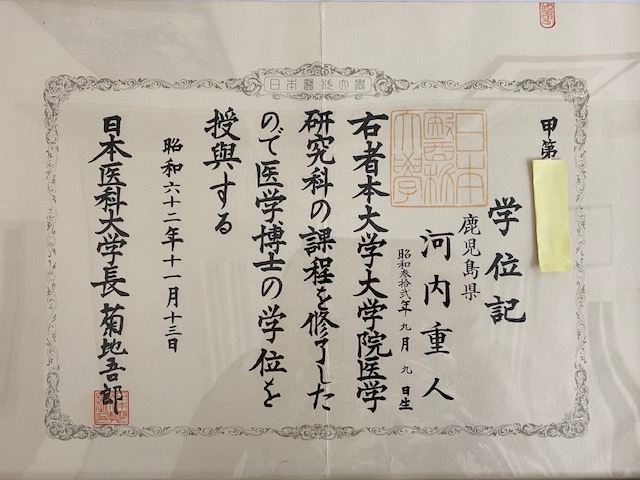 日本醫科大學
甲第
学位記
鹿児島県
河内重人
昭和参拾弐年九月九日生
日本
醫科
大学
右者本大学大学院医学
研究科の課程を修了した
ので医学博士の学位を
授與する
昭和六十二年十一月十三日
日本医科大学長 菊地吾郎